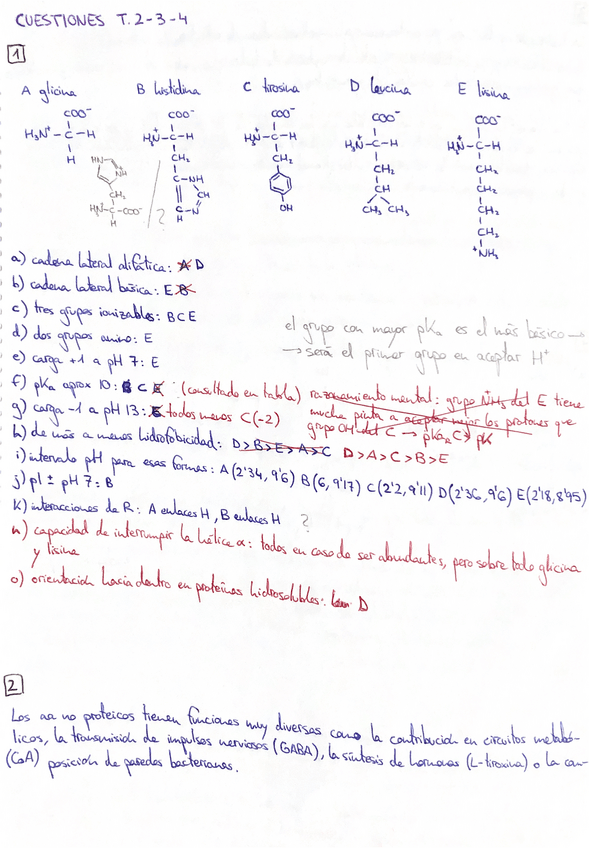 CUESTIONES T.2-3-4
1
A glicina B histidina C tirosina D leucina E lisina
COO⁻ COO⁻ COO⁻ COO⁻ COO⁻
H₃N⁺-C-H H₃N⁺-C-H H₃N⁺-C-H H₃N⁺-C-H H₃N⁺-C-H
H CH₂ CH₂ CH₂ CH₂
HN NH C-NH CH CH₂
CH₂ CH CH₃ CH₃ CH₂
C-COO⁻ C-N OH CH₂
H ? H ⁺NH₃
a) cadena lateral alifática: A D
b) cadena lateral básica: E B
c) tres grupos ionizables: B C E
d) dos grupos amino: E
e) carga +1 a pH 7: E
el grupo con mayor pKa es el más básico →
→ será el primer grupo en aceptar H⁺
f) pKa aprox 10: C E (consultado en tabla) razonamiento mental: grupo NH₃ del E tiene
mucha pinta a aceptar mejor los protones que
grupo OH del C → pKa C > pK
g) carga -1 a pH 13: E todos menos C(-2)
h) de más a menos hidrofobicidad: D>B>E>A>C D>A>C>B>E
i) intervalo pH para esas formas: A(2'34, 9'6) B(6, 9'17) C(2'2, 9'11) D(2'36, 9'6) E(2'18, 8'95)
j) pI ± pH 7: B
k) interacciones de R: A enlaces H, B enlaces H ?
n) capacidad de interrumpir la hélice α: todos en caso de ser abundantes, pero sobre todo glicina
y lisina
o) orientación hacia dentro en proteínas hidrosolubles: D
2
Los aa no proteicos tienen funciones muy diversas como la contribución en circuitos metabó-
licos, la transmisión de impulsos nerviosos (GABA), la síntesis de hormonas (L-tiroxina) o la com-
(CoA) posición de paredes bacterianas.